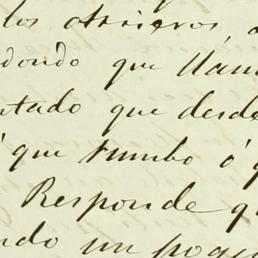 los otrieros, a
dondo que llam
ntado que desde
á que rumbo ó q
Responde q
ndo un poque